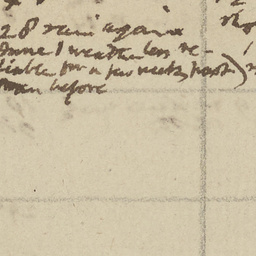 28 rain again
June 1 weather less re-
liable for a few weeks past)
than before